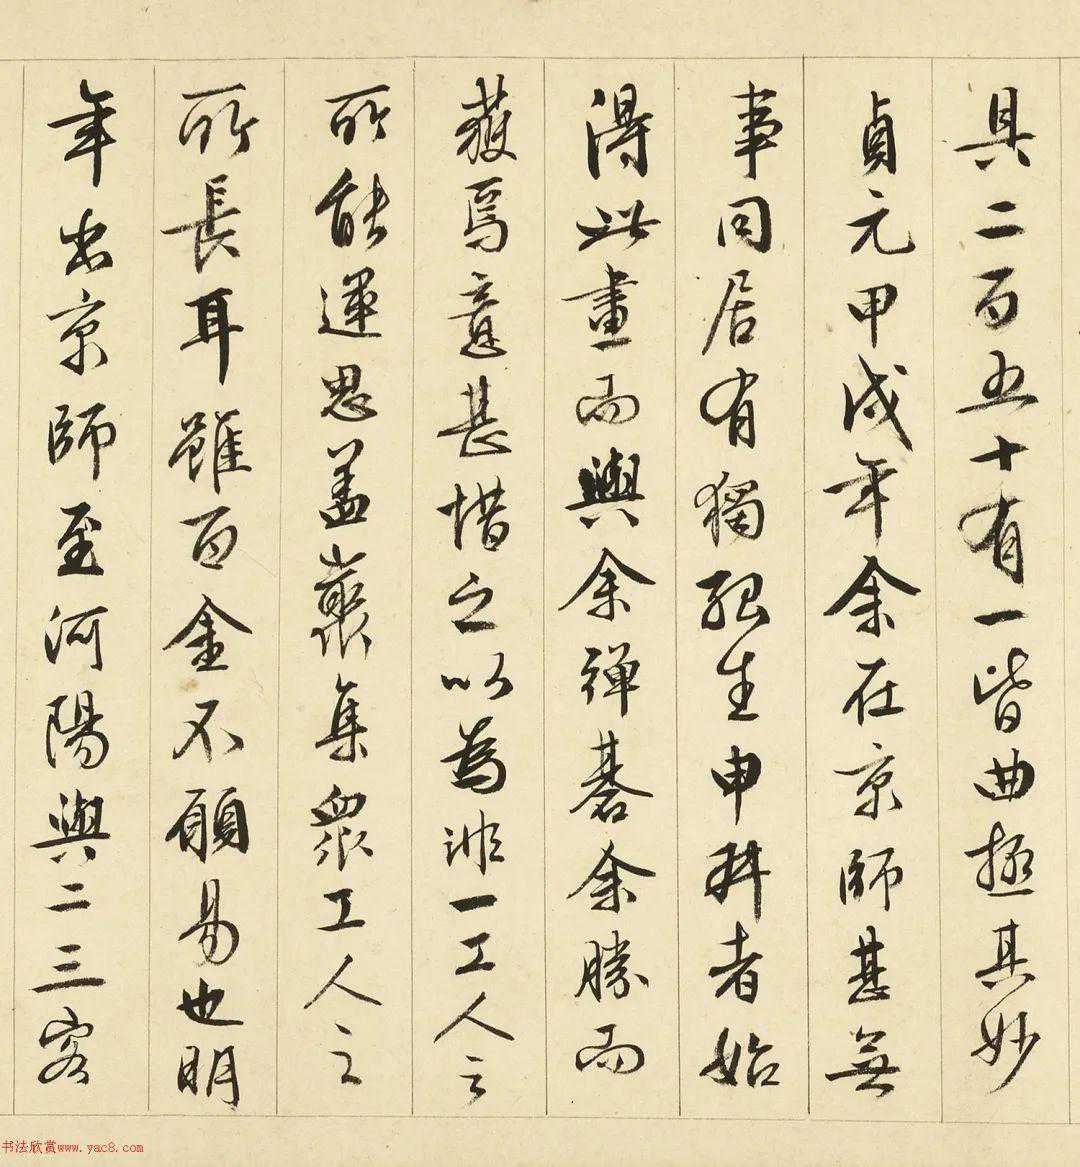 具二百五十有一皆曲極其妙
貞元甲戌年余在京師甚無
事同居有獨孤生申叔者始
得此畫而與余彈碁余勝而
獲焉意甚惜之以為非一工人之
所能運思蓋藂集眾工人之
所長耳雖百金不願易也明
年出京師至河陽與二三客
书法欣赏www.yac8.com